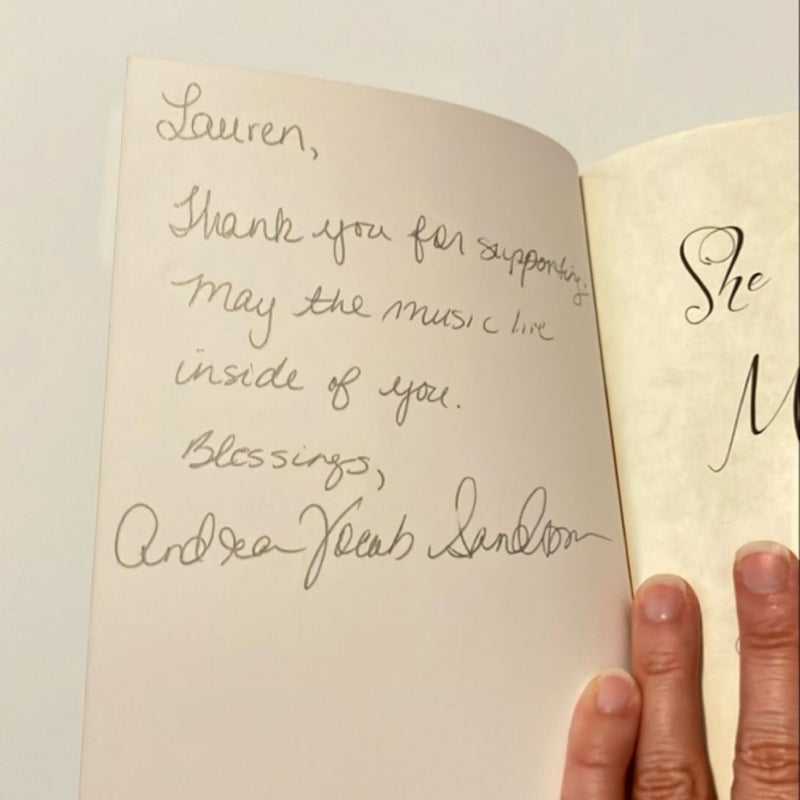 Lauren,
Thank you for supporting.
May the music live
inside of you.
Blessings,
Andrea Jacob Sandom
She
M